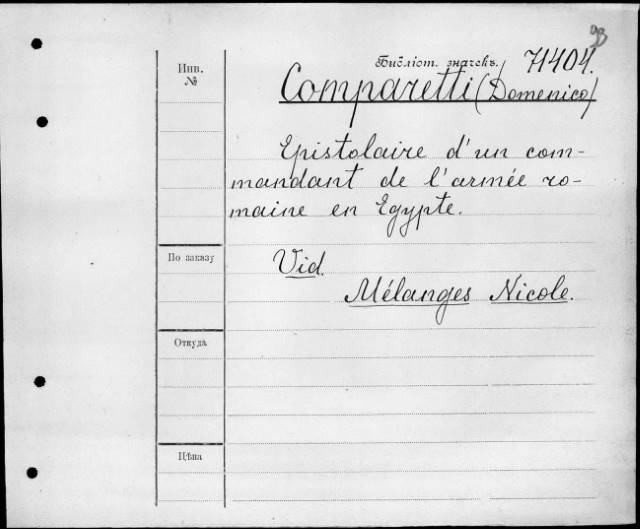 93
Библіот. значекъ. 71404.
Инв. №
Comparetti (Domenico)
Epistolaire d'un com-
mandant de l'armée ro-
maine en Egypte.
По заказу
Vid.
Mélanges Nicole.
Откуда
Цѣна